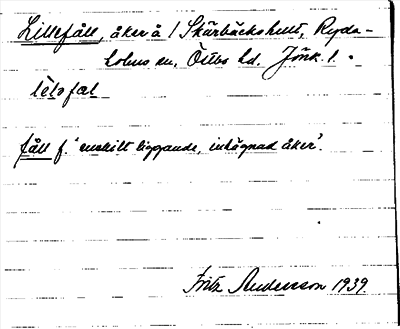 Lillefåll, åker å 1 Skärbäckshult, Ryda-
holms sn, Östbo hd. Jönk. l.
fåll f. 'enskilt liggande, inhägnad åker'.
Fritz Andersson 1939.